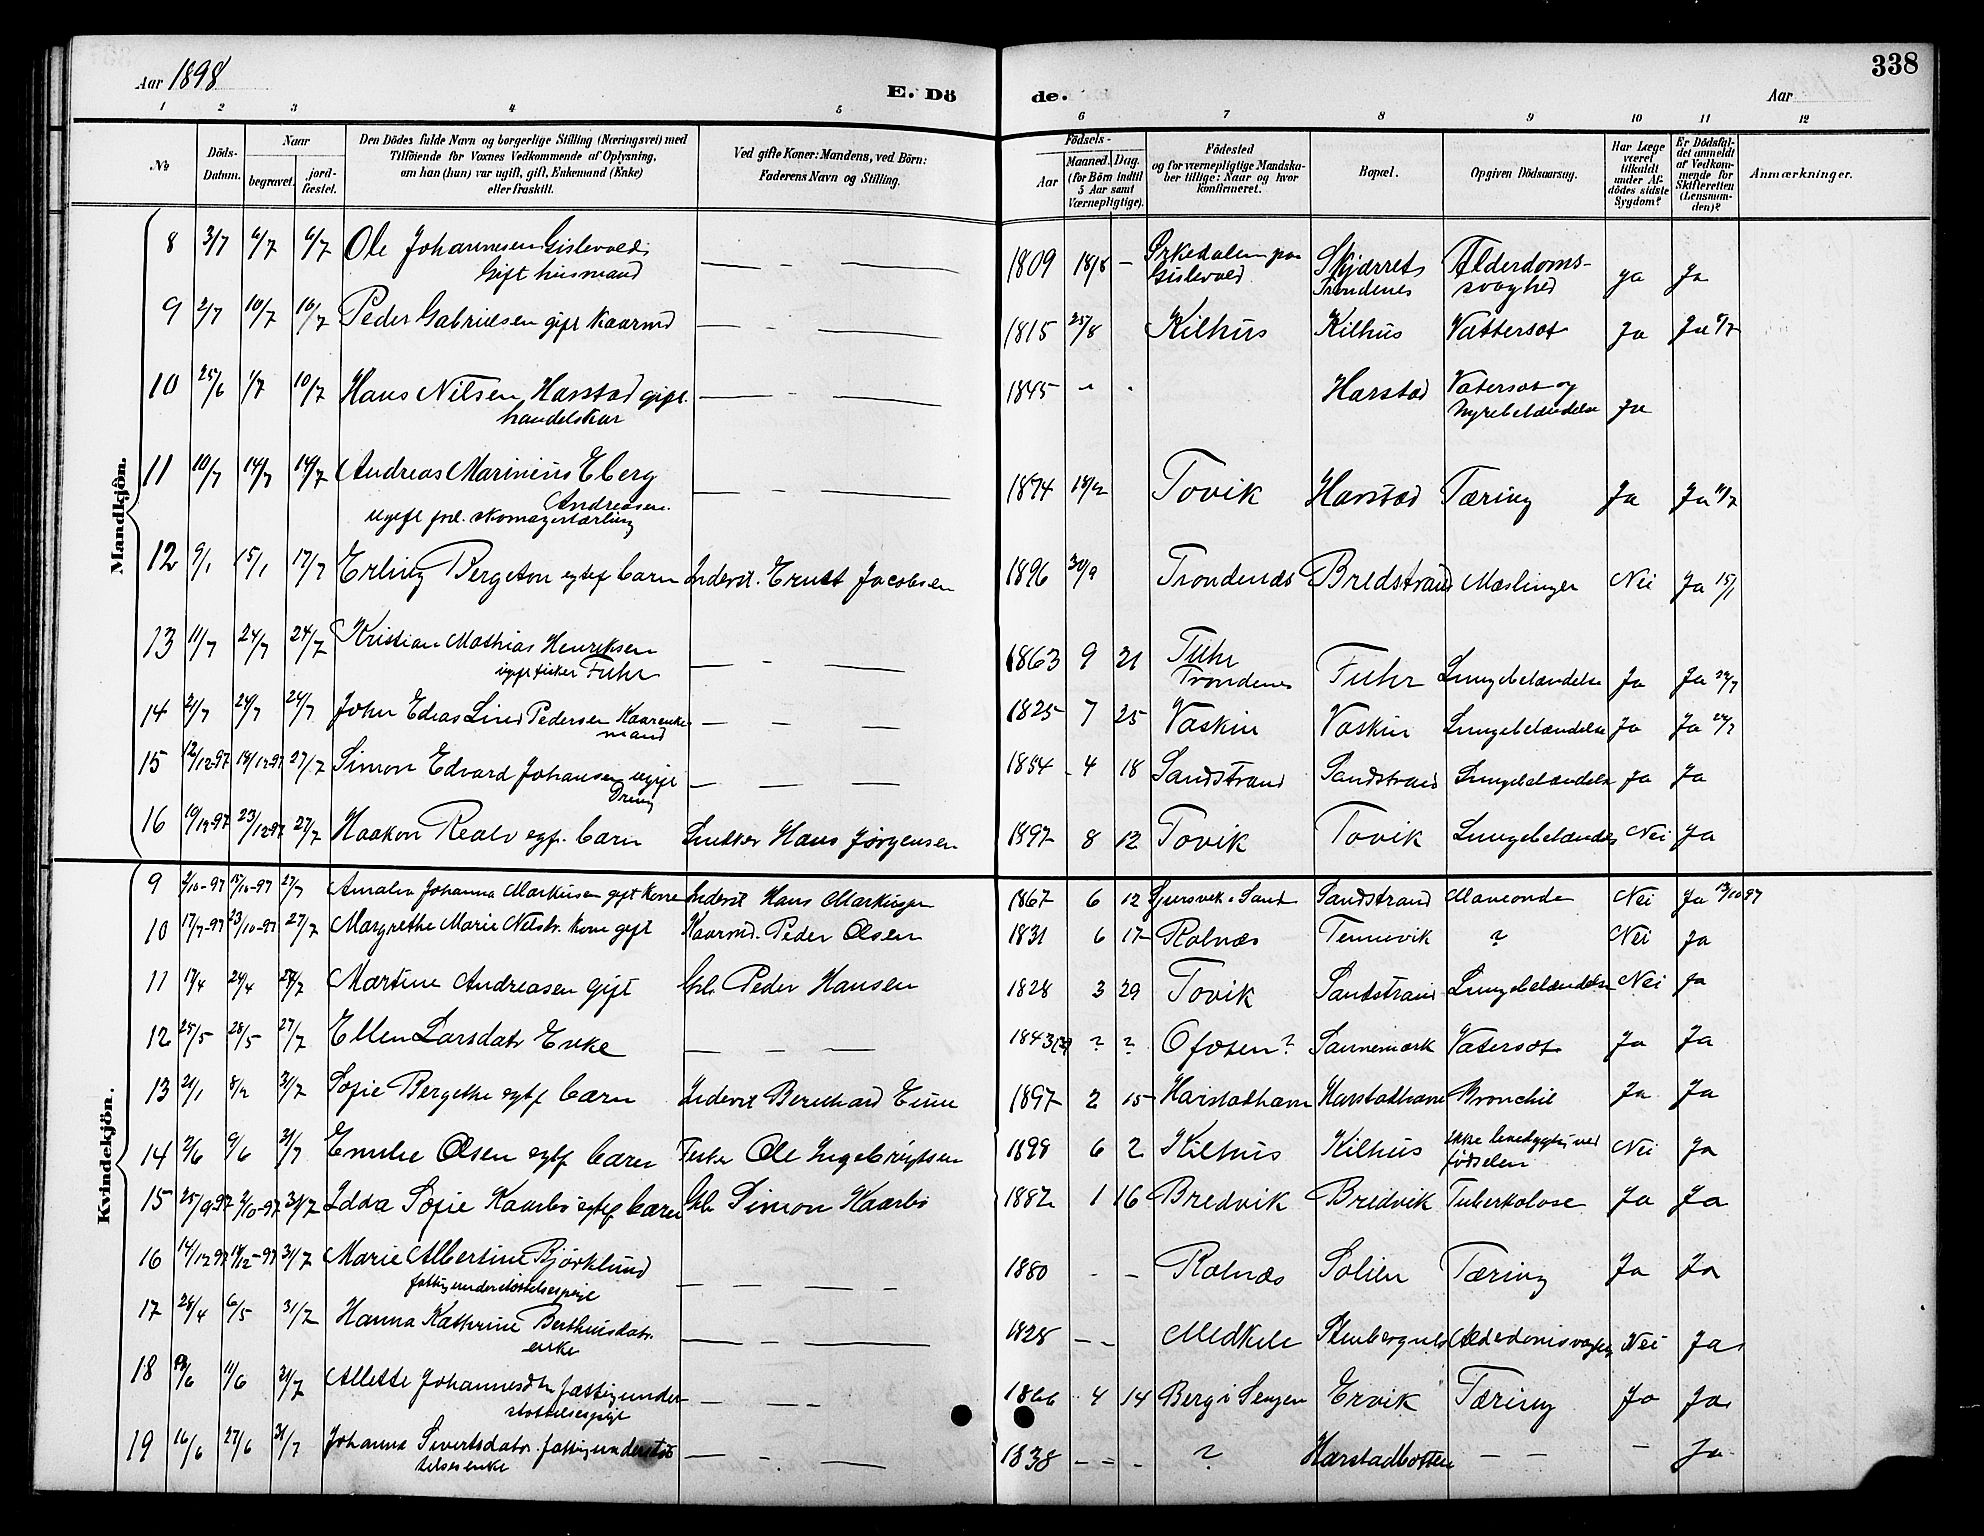 Aar 1898
E. Dö
de.
Aar
338
1 2 3 4 5 6 7 8 9 10 11 12
No
Döds-Datum.
Naar
begravet.
jord-fæstet.
Den Dödes fulde Navn og borgerlige Stilling (Næringsvei) med
Tilföiende for Voxnes Vedkommende af Oplysning,
om han (hun) var ugift, gift, Enkemand (Enke)
eller fraskilt.
Ved gifte Koner: Mandens, ved Börn:
Faderens Navn og Stilling.
Födsels-
Aar
Maaned. Dag.
(for Börn indtil
5 Aar samt
Værnepligtige).
Födested
og for værnepligtige Mandska-
ber tillige: Naar og hvor
konfirmeret.
Bopæl.
Opgiven Dödsaarsag.
Har Læge
været
tilkaldt
under Af-
dödes sidste
Sygdom?
Er Dödsfal-
det anmeldt
af Vedkom-
mende for
Skifteretten
(Lensman-
den)?
Anmærkninger.
Mandkjön.
8 3/7 6/7 6/7 Ole Johannesen Gislevold — - — 1809 18/8 - Orkedalen paa Skjærret Alderdoms- ja Ja
Gift husmand Gislevold Trondenes svaghed
9 2/7 10/7 10/7 Peder Gabrielsen gift Kaarmd — - — 1815 25/8 Kilhus Kilhus Vattersot Ja Ja
10 25/6 1/7 10/7 Hans Nilsen Harstad gift — - — 1845 Harstad Vatersot og
handelskar Nyrebetændelse Ja
11 10/7 14/7 14/7 Andreas Marinius Eberg — - — 1874 Tovik Harstad Tæring Ja Ja
Andreasen.
ugift forl. skomagerlærling
12 9/1 15/1 17/7 Erling Bergeton egtef barn Inderst. Ernst Jacobsen 1896 30/9 Trondenes Bredstrand Mæslinger Nei Ja 15/1
13 11/7 24/7 24/7 Kristian Mathias Henriksen — - — 1863 9 21 Fuhr Fuhr Lungebetændelse Ja Ja 24/7
ugift fisker Fuhr Trondenes
14 21/7 24/7 24/7 John Edias Lind Pedersen Kaarenke- — — — 1825 7 25 Vaskin Vaskin Lungebetændelse Ja Ja 24/7
mand
15 12/12-97 18/12-97 27/7 Simon Edvard Johansen ugift — — — 1854 4 18 Sandstrand Sandstrand Lungebetændelse Ja Ja
Dreng
16 19/12-97 23/12-97 27/7 Haakon Realv egf. barn Snekker Hans Jørgensen 1897 8 12 Tovik Tovik Lungebetændelse Nei Ja
Kvindekjön.
9 15/10-97 27/7 Amalia Johanna Markusen gift Kone Inderst Hans Markusen 1867 6 12 Sandstrand Nei Ja 13/10 97
10 17/7-97 23/10-97 27/7 Margrethe Marie Nilsdr. Kone gift Kaarmd. Peder Olsen 1831 6 17 Rolnæs Tennevik ? Nei Ja
11 17/4 24/4 27/7 Martine Andreasen gift Gbr. Peder Hansen 1828 3 29 Tovik Sandstrand Lungebetændelse Nei Ja
12 25/5 28/5 27/7 Ellen Larsdatr Enke — — — 1843 ? ? Ofoten? Sannemark Vatersot Ja Ja
13 21/1 8/2 31/7 Sofie Bergethe egtf barn Inderst Bernhard Eine 1897 2 15 Harstadhavn Harstadhavn Bronchit Ja Ja
14 2/6 9/6 31/7 Emilie Olsen egtf barn Fisker Ole Ingebrigtsen 1898 6 2 Kilhus Kilhus ikke levedygtig ved Nei Ja
fødselen
15 25/9 97 2/10-97 31/7 Idda Sofie Kaarbø egtef barn Gbr Simon Kaarbø 1882 1 16 Bredvik Bredvik Tuberkolose Ja Ja
16 14/12 97 31/7 Marie Albertine Bjørklund — — — 1880 - - Rolnæs Solien Tæring Ja Ja
fattigunderstøttelsespige
17 28/4 6/5 31/7 Hanna Kathrine Berthusdatr. — — — 1828 - - Medkile Alderdomssvaghed Nei Ja
enke
18 11/6 31/7 Allette Johannesdtr fattigunder- — — — 1866 4 14 Berg i Senjen Ervik Tæring Ja Ja
støttelsespige
19 16/6 27/6 31/7 Johanna Sivertsdatr. fattigunderstøt — - — 1838 - - ? Harstadbotten — — - Ja
telsesenke